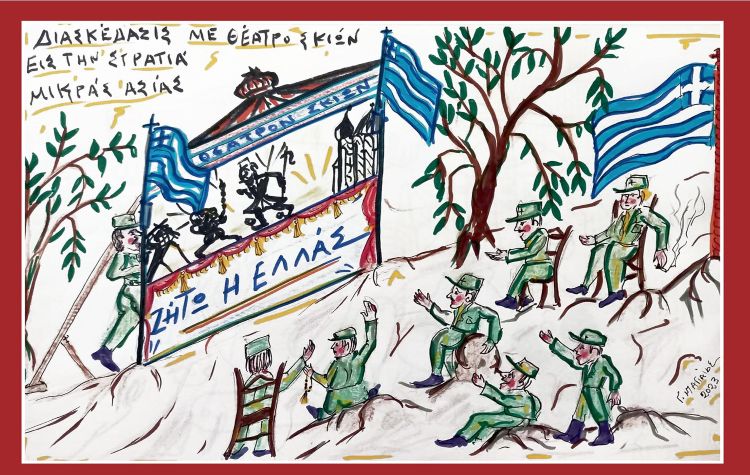 ΔΙΑΣΚΕΔΑΣΙΣ ΜΕ ΘΕΑΤΡΟ ΣΚΙΩΝ
ΕΙΣ ΤΗΝ ΣΤΡΑΤΙΑ
ΜΙΚΡΑΣ ΑΣΙΑΣ
ΘΕΑΤΡΟΝ ΣΚΙΩΝ
ΖΗΤΩ Η ΕΛΛΑΣ
2023